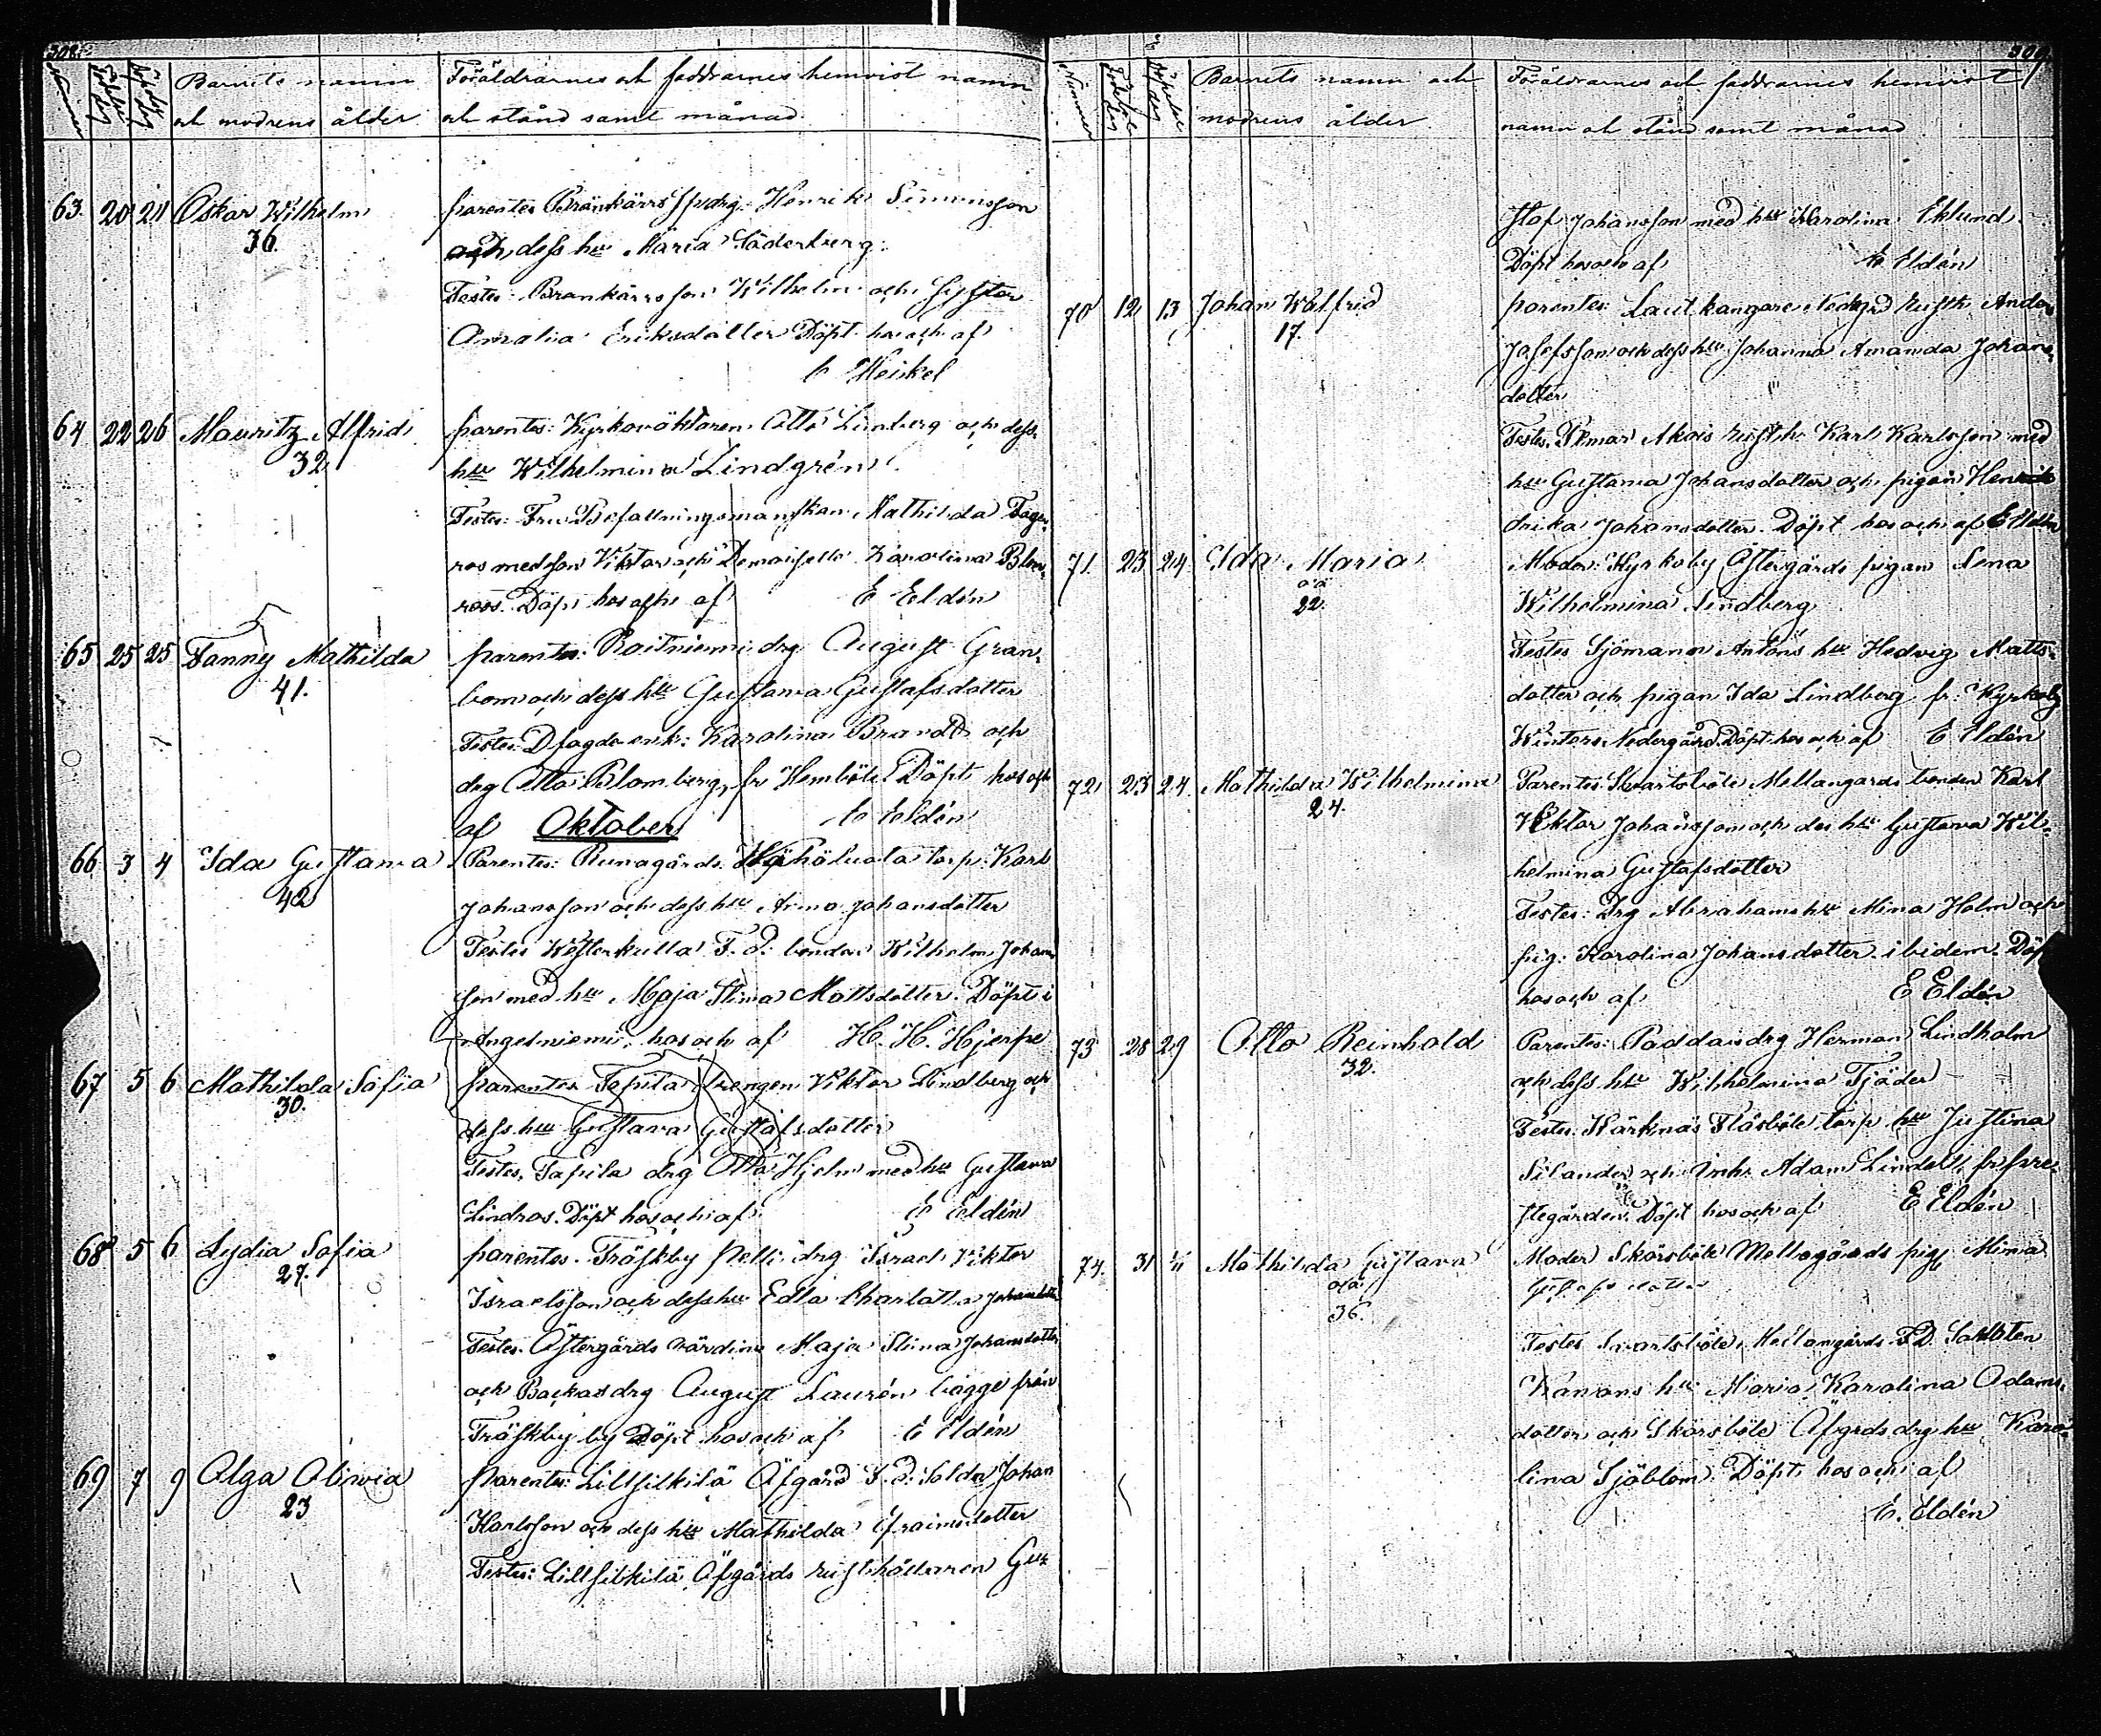 308.
Nummer Födelse dag Döpelse dag Barnets namn Föräldrarnes och faddrarnes hemvist namn
och modrens ålder och stånd samt månad
63. 20 21 Oskar Wilhelm parentes Brankärrs drg Henrik Simonsson
36. och dess hu Maria Söderberg
Testes: Brankärrs son Wilhelm och syster
Amalia Eriksdotter Döpt hos och af
C Heikel
64 22 26 Mauritz Alfrid parentes: Kyrkoväktaren Otto Limberg och dess
32 hu Wilhelmina Lindgrén
Testes: Fru Befallningsmanskan Mathilda Fager
ros med son Viktor och Demoiselle Karolina Blom
roos. Döpt hos och af E Eldén
65 25 25 Fanny Mathilda parentes: Roitniemi drg August Gran
41. bom och dess hu Gustava Gustafsdotter
Testes: Karolina Brandt och
drg Otto Blomberg fr Hemböle Döpt hos och
af Oktober E Eldén
66 3 4 Ida Gustava Parentes: Runagårds torp: Karl
42 Johansson och dess hu Anna Johansdotter
Testes Westerkulla F. d. bonden Wilhelm Johans
son med hu Maja Stina Mattsdotter. Döpt i
Angelniemi, hos och af H. H. Hjerpe
67 5 6 Mathilda Sofia parentes Tepila drengen Viktor Lindberg och
30. dess hu Gustava Gustafsdotter
Testes, Tapila drg Otto Hjelm med hu Gustava
Lindros. Döpt hos och af E Eldén
68 5 6 Lydia Sofia parentes. Träskby Pelli drg Israel Viktor
27. Israelsson och dess hu Edla Charlotta Johansdotter
Testes. Östergårds värdina Maja Stina Johansdotter
och Backas drg August Laurén bägge från
Träskby by Döpt hos och af E Eldén
69 7 9 Olga Oliwia Parentes: Lillsilkilä Åfgård F. d. Soldn Johan
23 Karlsson och dess hu Mathilda Efraimsdotter
Testes: Lillsilkilä Åfgårds rusthållaren Gu
309.
Nummer Födelse dag Döpelse dag Barnets namn och Föräldrarnes och faddrarnes hemvist
modrens ålder namn och stånd samt månad
staf Johansson med hu Karolina Eklund
Döpt hos och af E Eldén
70 12 13 Johan Walfrid parentes: Lautkangare Nedergd rusth. Anders
17. Josefsson och dess hu Johanna Amanda Johans
dotter
Testes. Pemar Akois rusth. Karl Karlsson med
hu Gustava Johansdotter och pigan Hen
drika Johansdotter. Döpt hos och af E Eldén
71. 23 24 Ida Maria Moder: Kyrkoby Östergårds pigan Lena
oä
22. Wilhelmina Lindberg
Testes Sjöman Antons hu Hedvig Matts
dotter och pigan Ida Lindberg fr. Kyrkoby
Winters Nedergård. Döpt hos och af E Eldén
72. 23 24 Mathilda Wilhelmina Parentes: Svartsböle Mellangards bonden Karl
24. Viktor Johansson och des hu Gustava Wil
helmina Gustafsdotter
Testes: Drg Abrahams hu Mina Holm och
pig. Karolina Johansdotter ibidem. Döpt
hos och af E Eldén
73 28 29 Otto Reinhold Parentes: Paddais drg Herman Lindholm
32. och dess hu Wilhelmina Tjäder
Testes. Kärknäs Flåsböle torp hu Justina
Silander och Inh: Adam Lindell, fr pre
stegården Döpt hos och af E Eldén
74. 31 1/11 Mathilda Gustava Moder Skärsböle Mellogårds pig Mina
oä Gustafsdotter
36. Testes Svartsböle Mellangårds F.D. Soldaten
Kanons hu Maria Karolina Adams
dotter och Skärsböle Åfgrds drg hu Karo
lina Sjöblom. Döpt, hos och af
E. Eldén